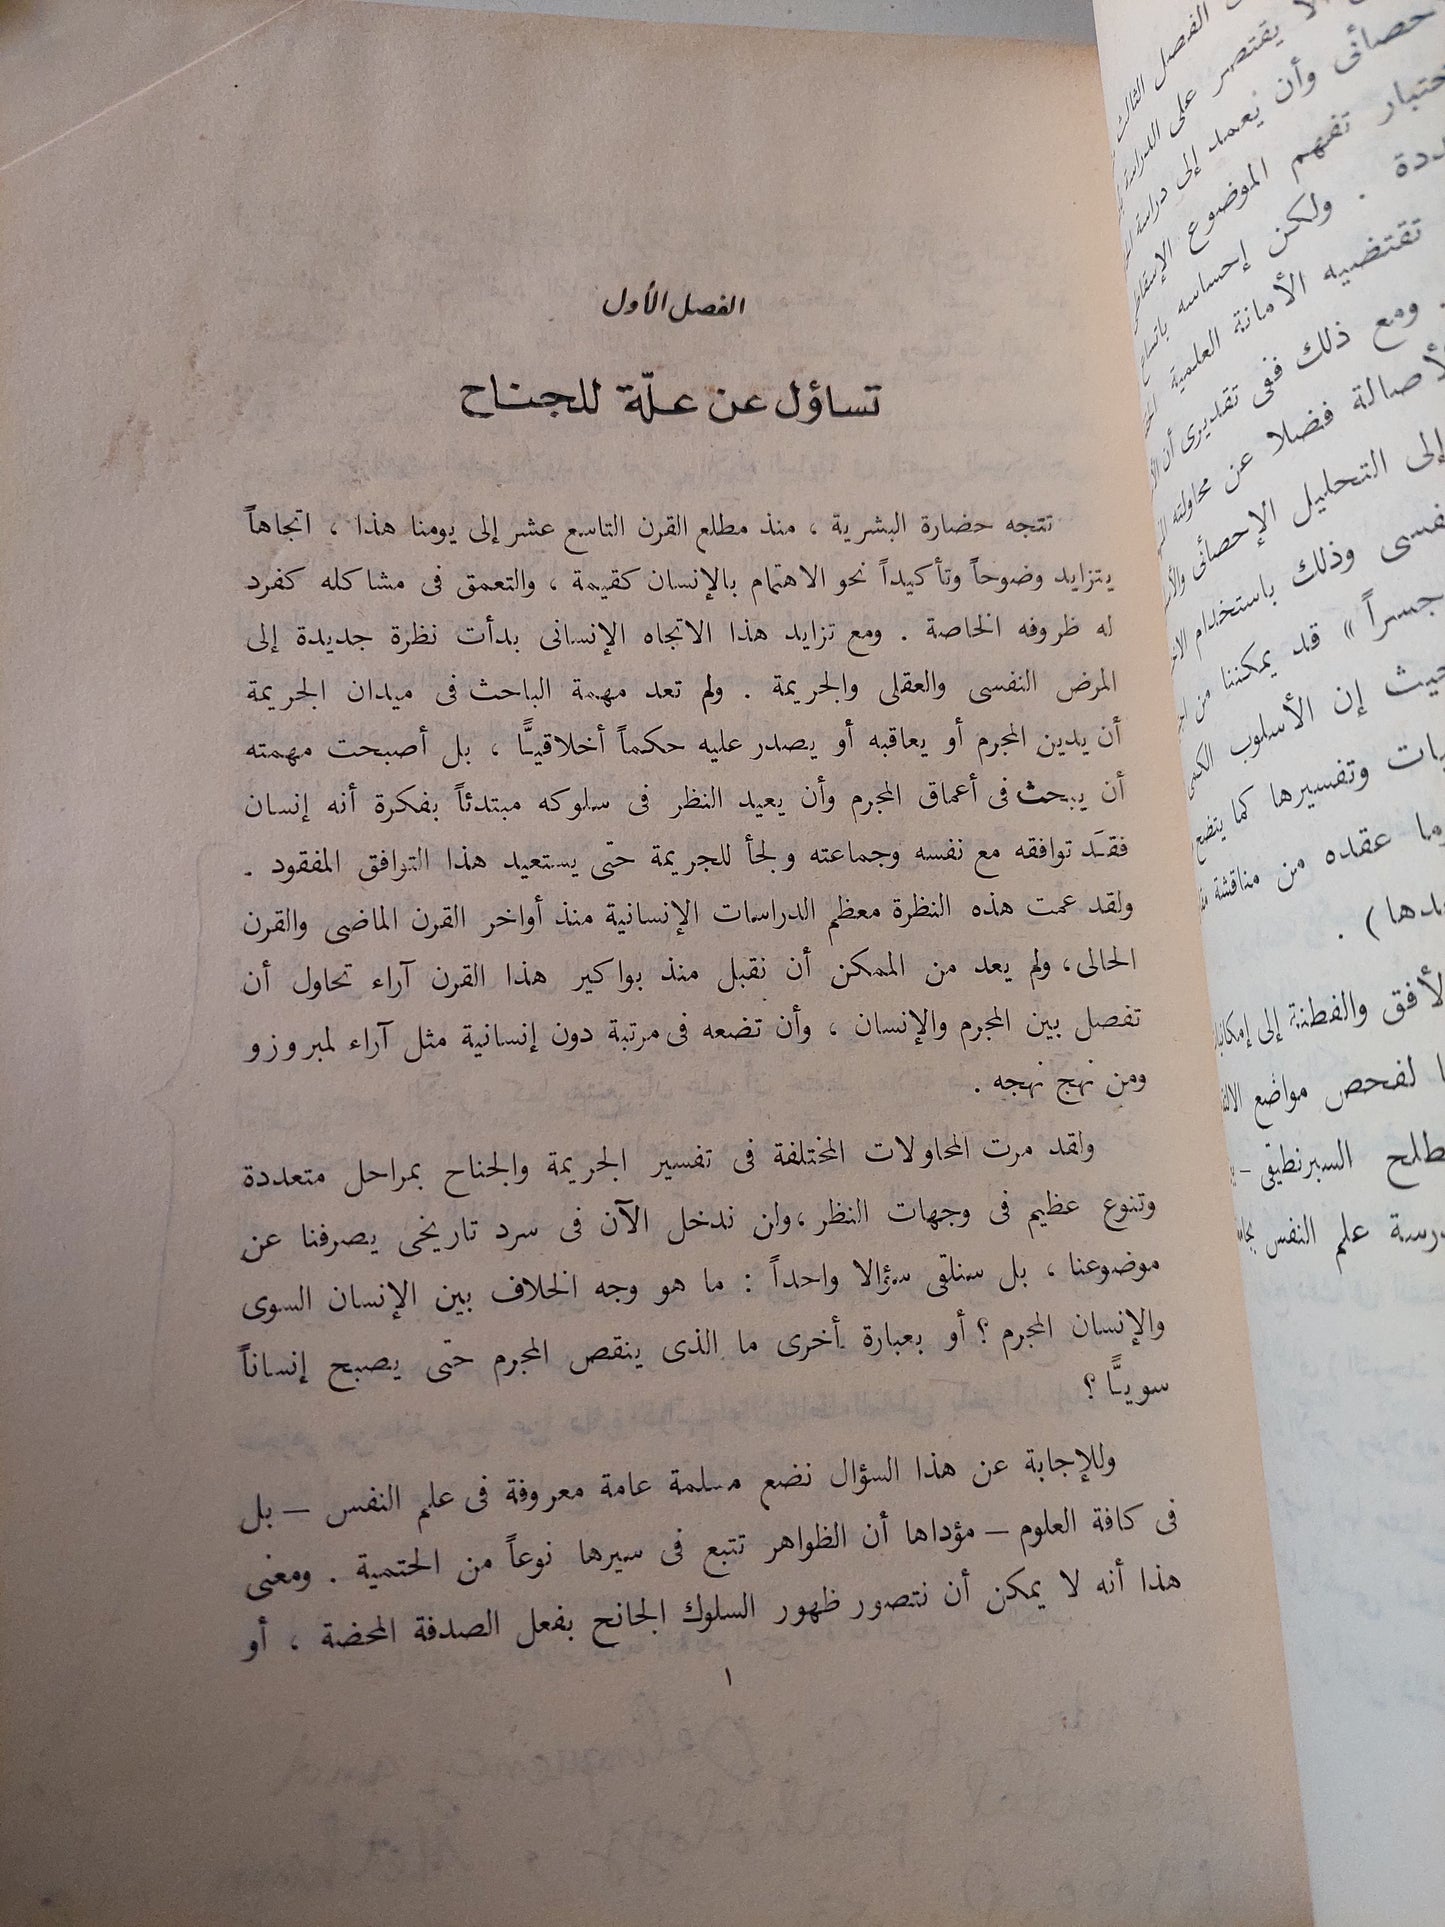 الفصل الأول
تساؤل عن علّة للجناح
تتجه حضارة البشرية ، منذ مطلع القرن التاسع عشر إلى يومنا هذا ، اتجاهاً
يتزايد وضوحاً وتأكيداً نحو الاهتمام بالإنسان كقيمة ، والتعمق فى مشاكله كفرد
له ظروفه الخاصة . ومع تزايد هذا الاتجاه الإنسانى بدأت نظرة جديدة إلى
المرض النفسى والعقلى والجريمة . ولم تعد مهمة الباحث فى ميدان الجريمة
أن يدين المجرم أو يعاقبه أو يصدر عليه حكماً أخلاقيًّا ، بل أصبحت مهمته
أن يبحث فى أعماق المجرم وأن يعيد النظر فى سلوكه مبتدئاً بفكرة أنه إنسان
فقَد توافقه مع نفسه وجماعته ولجأ للجريمة حتى يستعيد هذا التوافق المفقود .
ولقد عمت هذه النظرة معظم الدراسات الإنسانية منذ أواخر القرن الماضى والقرن
الحالى، ولم يعد من الممكن أن نقبل منذ بواكير هذا القرن آراء تحاول أن
تفصل بين المجرم والإنسان ، وأن تضعه فى مرتبة دون إنسانية مثل آراء لمبروزو
ومن نهج نهجه .
ولقد مرت المحاولات المختلفة فى تفسير الجريمة والجناح بمراحل متعددة
وتنوع عظيم فى وجهات النظر ،ولن ندخل الآن فى سرد تاريخى يصرفنا عن
موضوعنا ، بل سنلقى سؤالا واحداً : ما هو وجه الخلاف بين الإنسان السوى
والإنسان المجرم ؟ أو بعبارة أخرى ما الذى ينقص المجرم حتى يصبح إنساناً
سويًّا ؟
وللإجابة عن هذا السؤال نضع مسلمة عامة معروفة فى علم النفس – بل
فى كافة العلوم – مؤداها أن الظواهر تتبع فى سيرها نوعاً من الحتمية . ومعنى
هذا أنه لا يمكن أن نتصور ظهور السلوك الجانح بفعل الصدفة المحضة ، أو
١
الفصل الثالث
يقتصر على الدراسة
وأن يعمد إلى دراسة
تفهم الموضوع
. ولكن إحساسه باتساع
تقتضيه الأمانة العلمية
. ومع ذلك ففى تقديرى أن
فضلا عن محاولته
إلى التحليل الإحصائى
وذلك باستخدام
جسراً » قد يمكننا من
حيث إن الأسلوب
وتفسيرها كما يتضح
عقده من مناقشة
) .
الأفق والفطنة إلى
لفحص مواضع
السبرنطيقى –
علم النفس